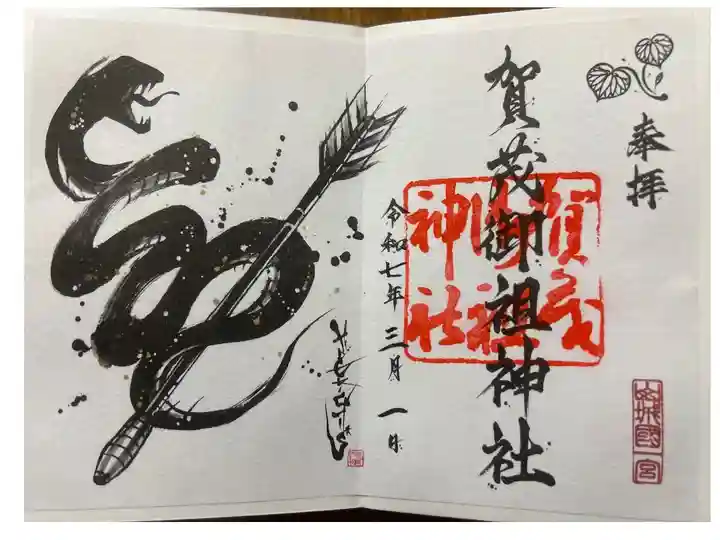 奉拝
賀茂御祖神社
賀茂
御祖
神社
山城國一宮
令和七年三月一日